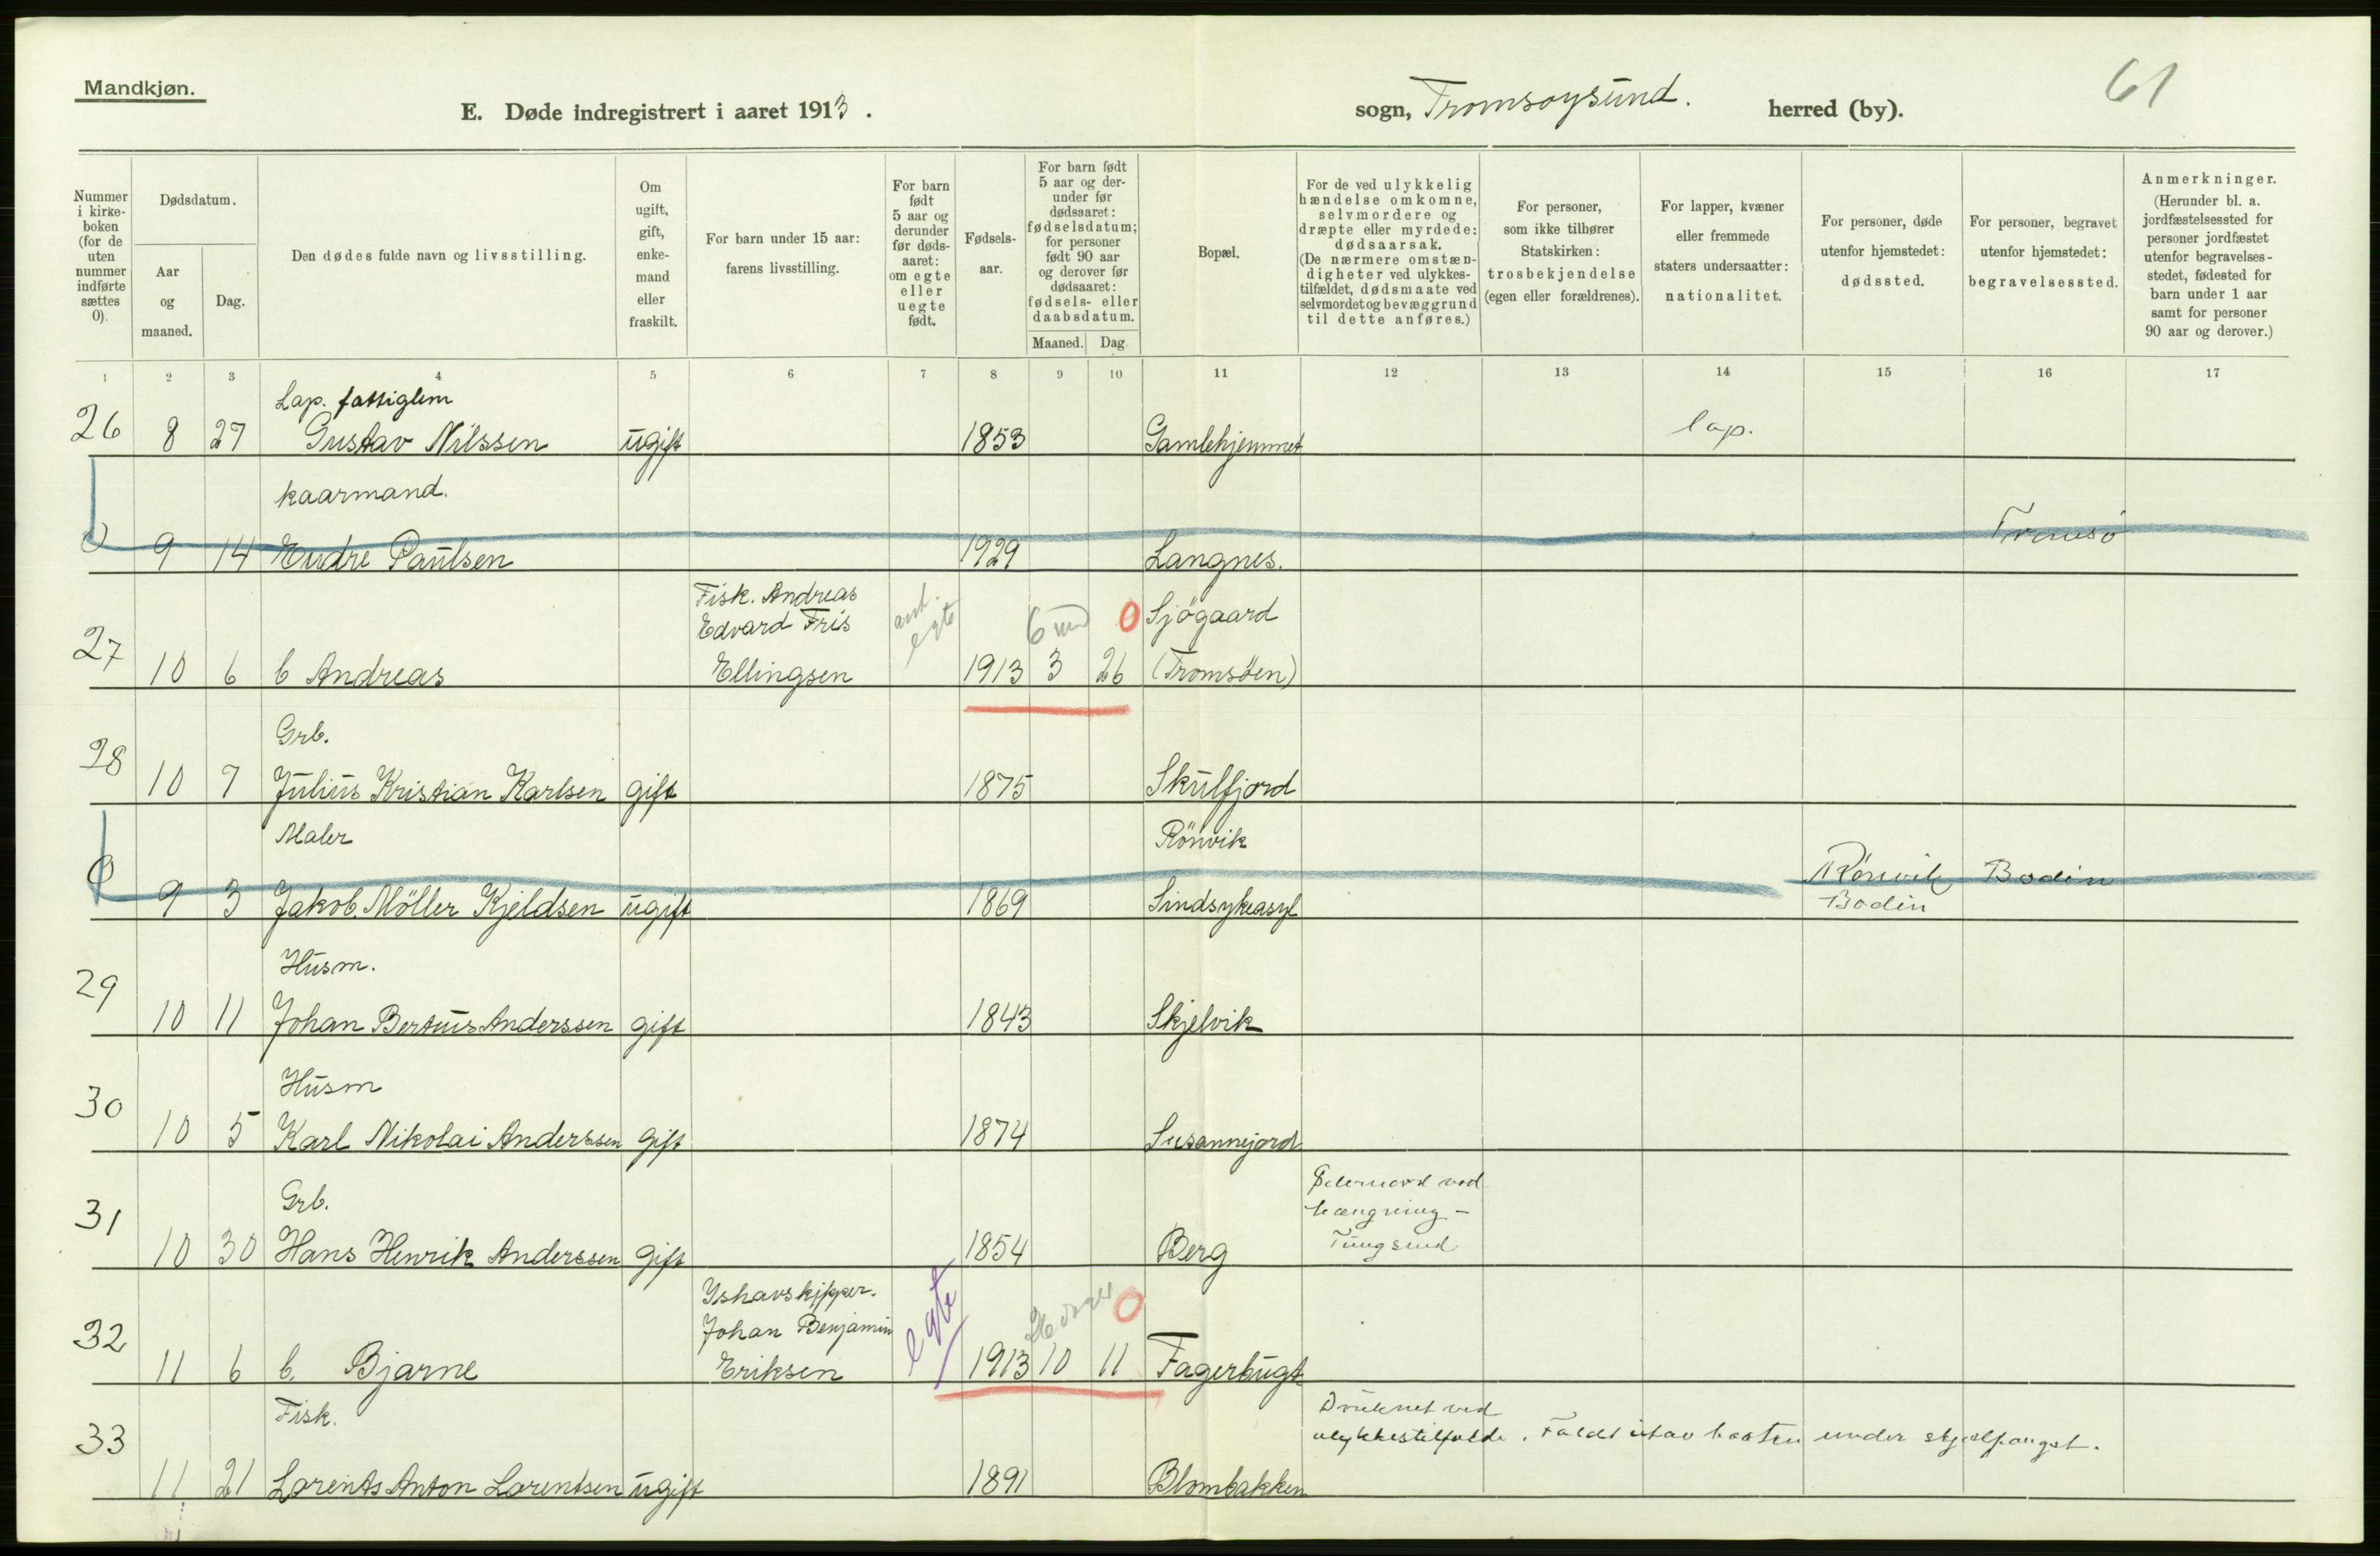 Mandkjøn.
E. Døde indregistrert i aaret 1913.
sogn, Tromsøysund. herred (by).
61
Nummer i kirke-boken (for de uten nummer indførte sættes 0).
Dødsdatum.
Aar og maaned.
Dag.
Den dødes fulde navn og livsstilling.
Om ugift, gift, enke-mand eller fraskilt.
For barn under 15 aar: farens livsstilling.
For barn født 5 aar og derunder før døds-aaret: om egte eller uegte født.
Fødsels-aar.
For barn født 5 aar og der-under før dødsaaret: fødselsdatum; for personer født 90 aar og derover før dødsaaret: fødsels- eller daabsdatum.
Maaned. Dag
Bopæl.
For de ved ulykkelig hændelse omkomne, selvmordere og dræpte eller myrdede: dødsaarsak. (De nærmere omstæn-digheter ved ulykkes-tilfældet, dødsmaate ved selvmordet og bevæggrund til dette anføres.)
For personer, som ikke tilhører Statskirken: trosbekjendelse (egen eller forældrenes).
For lapper, kvæner eller fremmede staters undersaatter: nationalitet.
For personer, døde utenfor hjemstedet: dødssted.
For personer, begravet utenfor hjemstedet: begravelsessted.
Anmerkninger. (Herunder bl. a. jordfæstelsessted for personer jordfæstet utenfor begravelses-stedet, fødested for barn under 1 aar samt for personer 90 aar og derover.)
1 2 3 4 5 6 7 8 9 10 11 12 13 14 15 16 17
Lap. fattiglem
26 8 27 Gustav Nilssen ugift 1853 Gamlehjemmet lap.
kaarmand.
0 9 14 Endre Paulsen 1929 Langnes. Tromsö
Fisk. Andreas
Edvard Fris egte 6 0 Sjögaard
27 10 6 b Andreas Ellingsen 1913 3 26 (Tromsöen)
Grb.
28 10 7 Julius Kristian Karlsen gift 1875 Skulfjord
Maler Rönvik
0 9 3 Jakob Möller Kjeldsen ugift 1869 Sindsykeasyl Rönvik Bodin Bodin
Husm.
29 10 11 Johan Bertius Anderssen gift 1843 Skjelvik
Husm
30 10 5 Karl Nikolai Anderssen gift 1874 Susannejord
Grb. Selvmord ved
hængning -
31 10 30 Hans Henrik Anderssen gift 1854 Berg Tungsind
Ishavskipper.
Johan Benjamin egte 26 dager 0
32 11 6 b. Bjarne Eriksen 1913 10 11 Fagerbugt
Fisk. Druknet ved
ulykkestilfælde. Faldt utav baaten under skjælfangst.
33 11 21 Lorents Anton Lorentsen ugift 1891 Blombakken